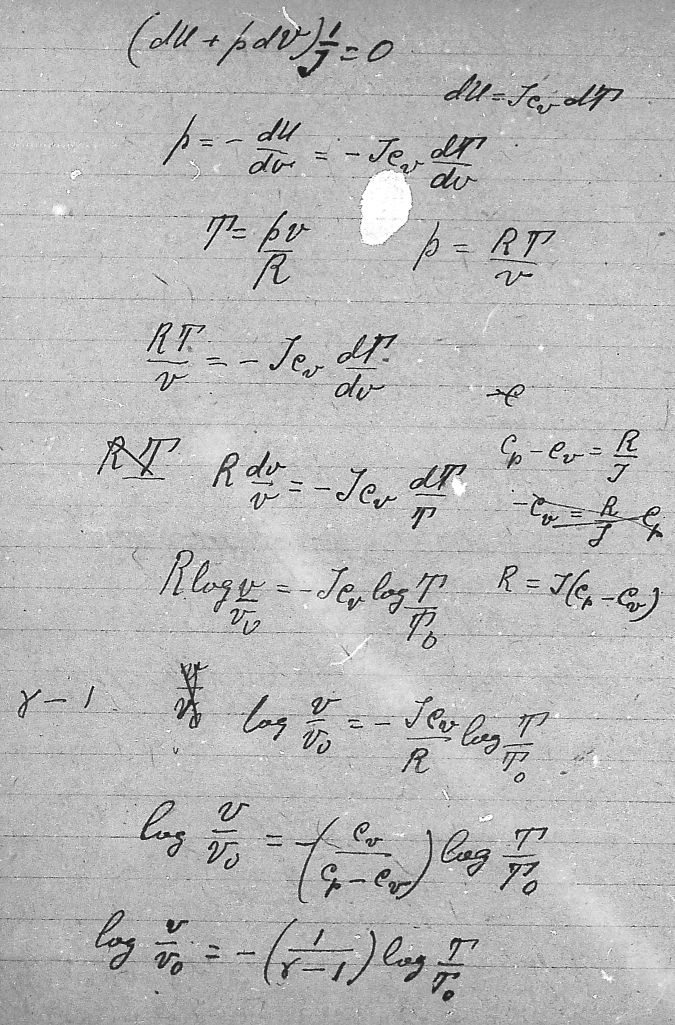 (du + pdv) 1/J = 0
du = Jc_v dT
p = - du/dv = - Jc_v dT/dv
T = pv/R p = RT/v
RT/v = - Jc_v dT/dv
-c
RT
c_p - c_v = R/J
R dv/v = - Jc_v dT/T
-c_v = R/J c_p
R log v/v_0 = - Jc_v log T/T_0 R = J(c_p - c_v)
γ - 1 v/v_0 log v/v_0 = - Jc_v/R log T/T_0
log v/v_0 = -(c_v/(c_p - c_v)) log T/T_0
log v/v_0 = -(1/(γ - 1)) log T/T_0